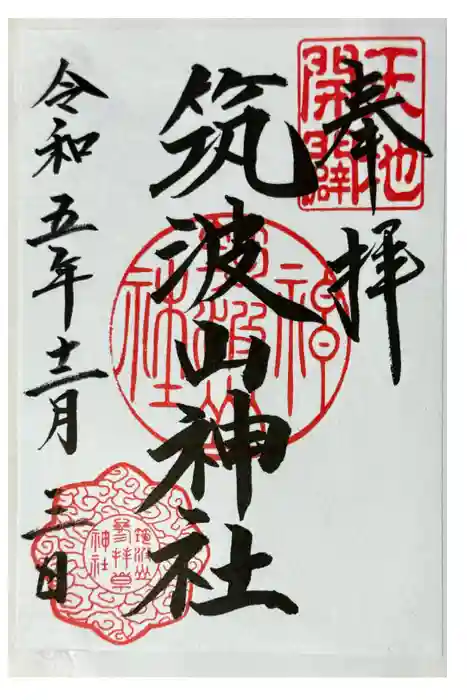 奉拝
天地
開闢
筑波山神社
神
筑波山
社
令和五年十二月三日
筑波山
神社